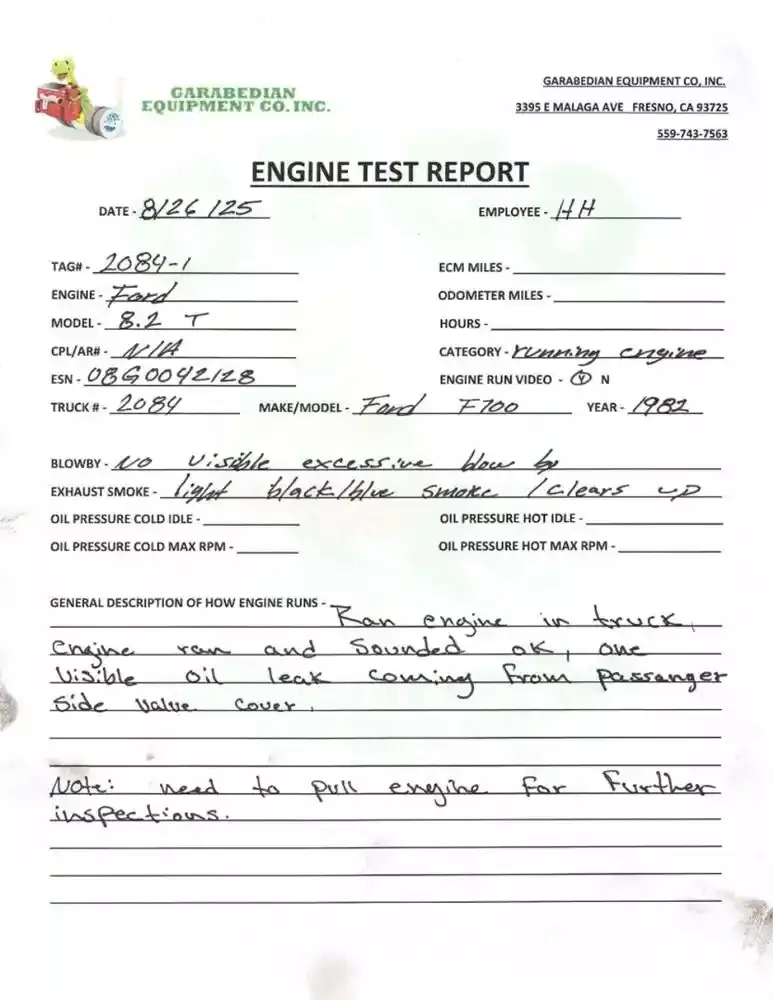 GARABEDIAN
EQUIPMENT CO. INC.
GARABEDIAN EQUIPMENT CO, INC.
3395 E MALAGA AVE FRESNO, CA 93725
559-743-7563
ENGINE TEST REPORT
DATE - 8/26/25 EMPLOYEE - HH
TAG# - 2084-1 ECM MILES -
ENGINE - Ford ODOMETER MILES -
MODEL - 8.2 T HOURS -
CPL/AR# - N/A CATEGORY - running engine
ESN - 08G0042128 ENGINE RUN VIDEO - Y N
TRUCK # - 2084 MAKE/MODEL - Ford F700 YEAR - 1982
BLOWBY - NO visible excessive blow by
EXHAUST SMOKE - light black/blue smoke / clears up
OIL PRESSURE COLD IDLE - OIL PRESSURE HOT IDLE -
OIL PRESSURE COLD MAX RPM - OIL PRESSURE HOT MAX RPM -
GENERAL DESCRIPTION OF HOW ENGINE RUNS - Ran engine in truck,
engine ran and sounded ok, one
visible oil leak coming from passanger
side valve cover.
Note: need to pull engine for further
inspections.